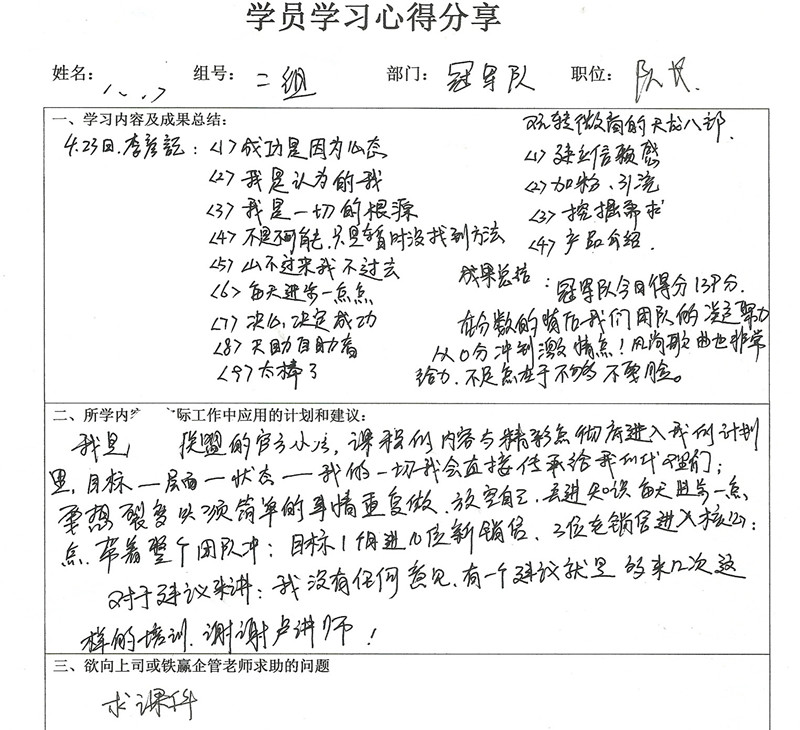 学员学习心得分享
姓名： 组号：二组 部门：冠军队 职位：队长.
一、学习内容及成果总结：
4.23日.李彦記：<1>成功是因为心态
<2>我是认为的我
<3>我是一切的根源
<4>不是不可能.只是暂时没找到方法
<5>山不过来我不过去
<6>每天进步一点点
<7>决心.决定成功
<8>天助自助者
<9>太棒了
玩转微商的天龙八部.
<1>建立信赖感
<2>加粉、引流
<3>挖掘需求
<4>产品介绍.
成果总结：冠军队今日得分139分.
在分数的背后我们团队的凝聚力
从0分冲到激情点！风尚歌曲也非常
给力.不足点在于不够不要脸。
二、所学内 实际工作中应用的计划和建议：
我是 联盟的官方小 ，课程的内容与精彩点彻底进入我们计划
里，目标一层面一状态一我的一切我会直接传承给我们代理们；
要想裂变必须简单的事情重复做.放空自己.去进知识每天进步一点
点.带着整个团队冲：目标1个月进 位新销售.
对于建议来讲：我没有任何意见.有一个建议就是多来几次这
样的培训.谢谢卢讲师！
三、欲向上司或铁赢企管老师求助的问题
求课件